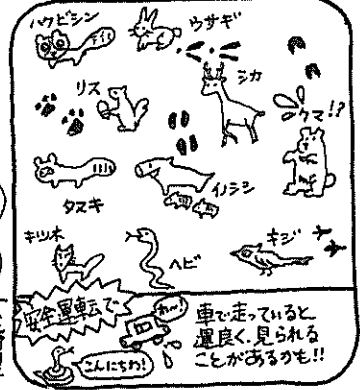 ハクビシン
ウサギ
リス
シカ
クマ!?
タヌキ
イノシシ
キツネ
ヘビ
キジ
安全運転で
わ〜!
こんにちわ!
車で走っていると
運良く、見られる
ことがあるかも!!